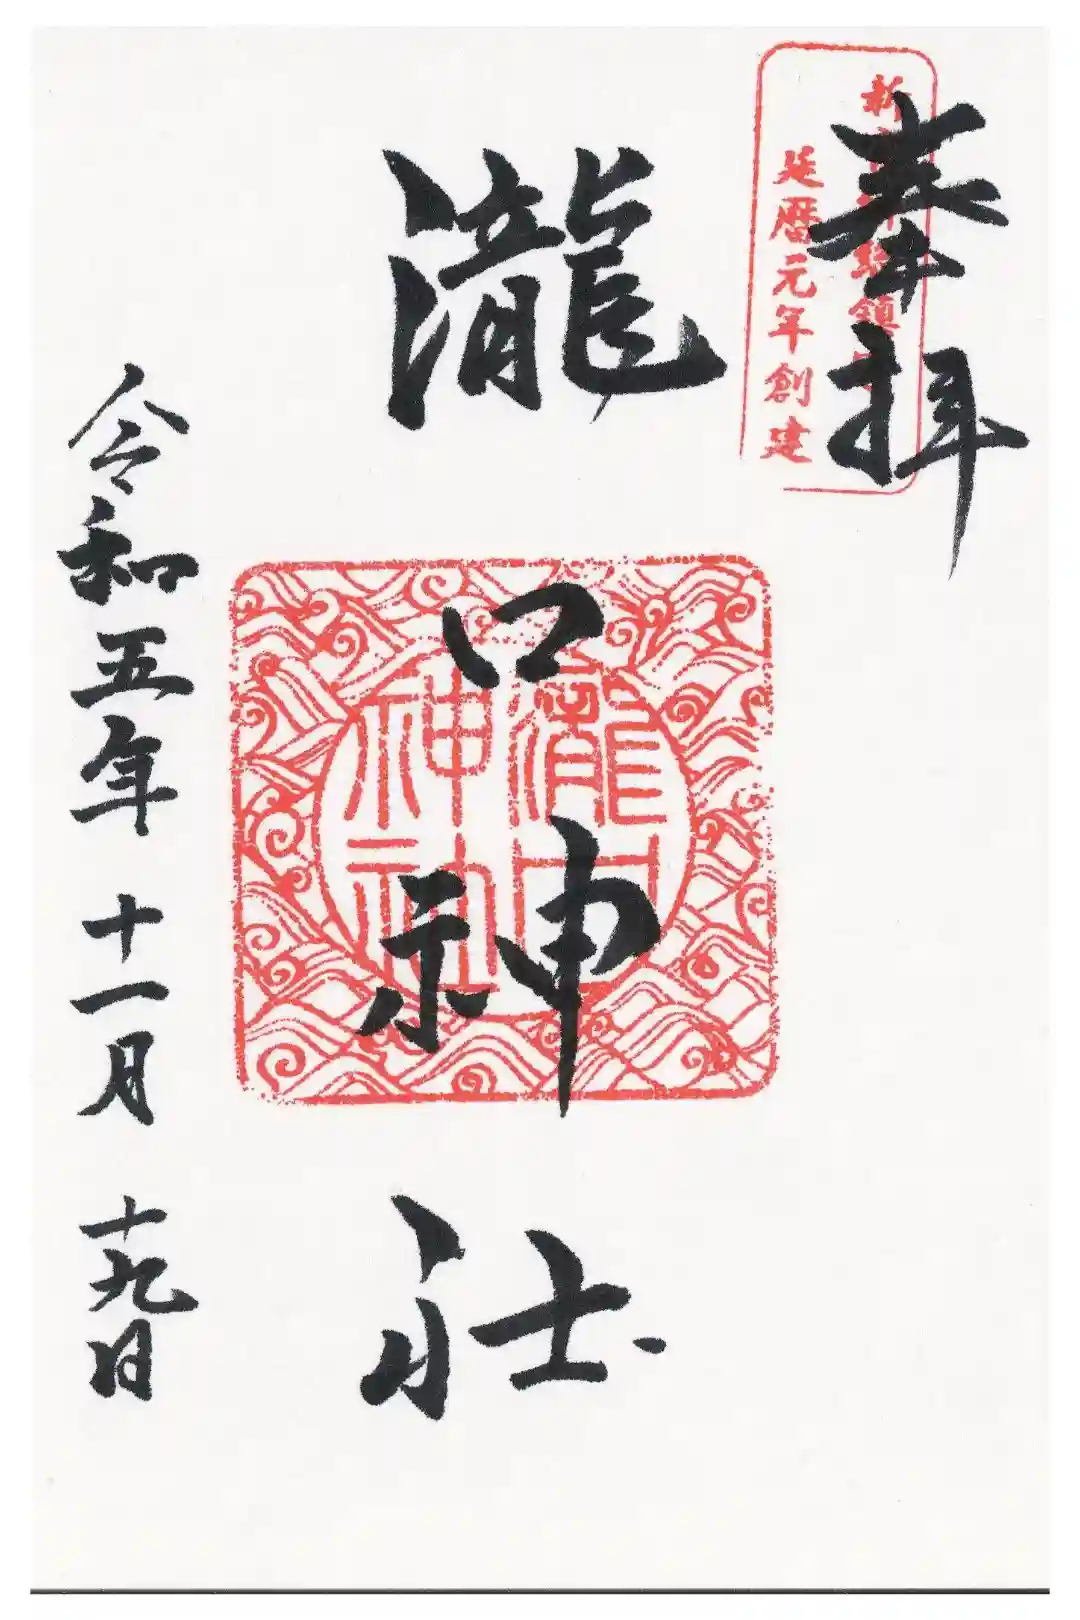 奉拝
延暦元年創建
瀧口神社
瀧口
神社
令和五年十一月十九日